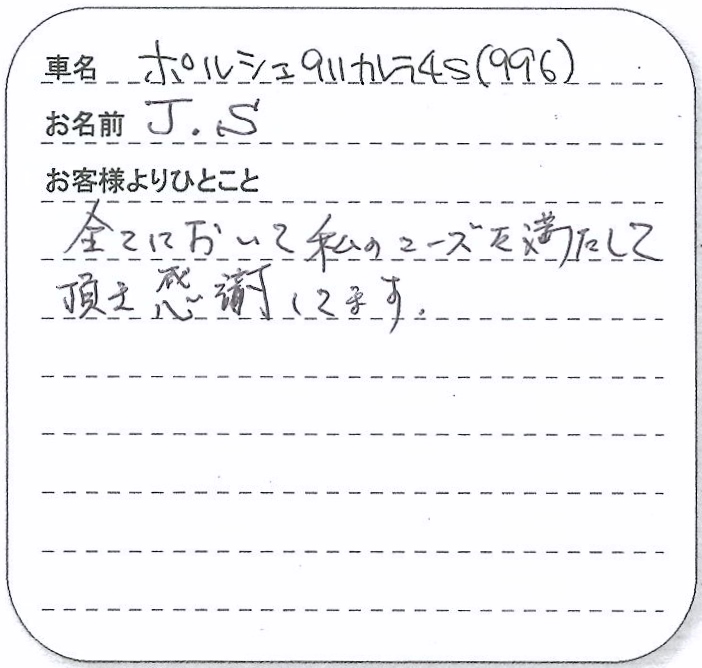 車名 ポルシェ911カレラ4S(996)
お名前 J.S
お客様よりひとこと
全てにおいて私のニーズを満たして
頂き感謝してます。